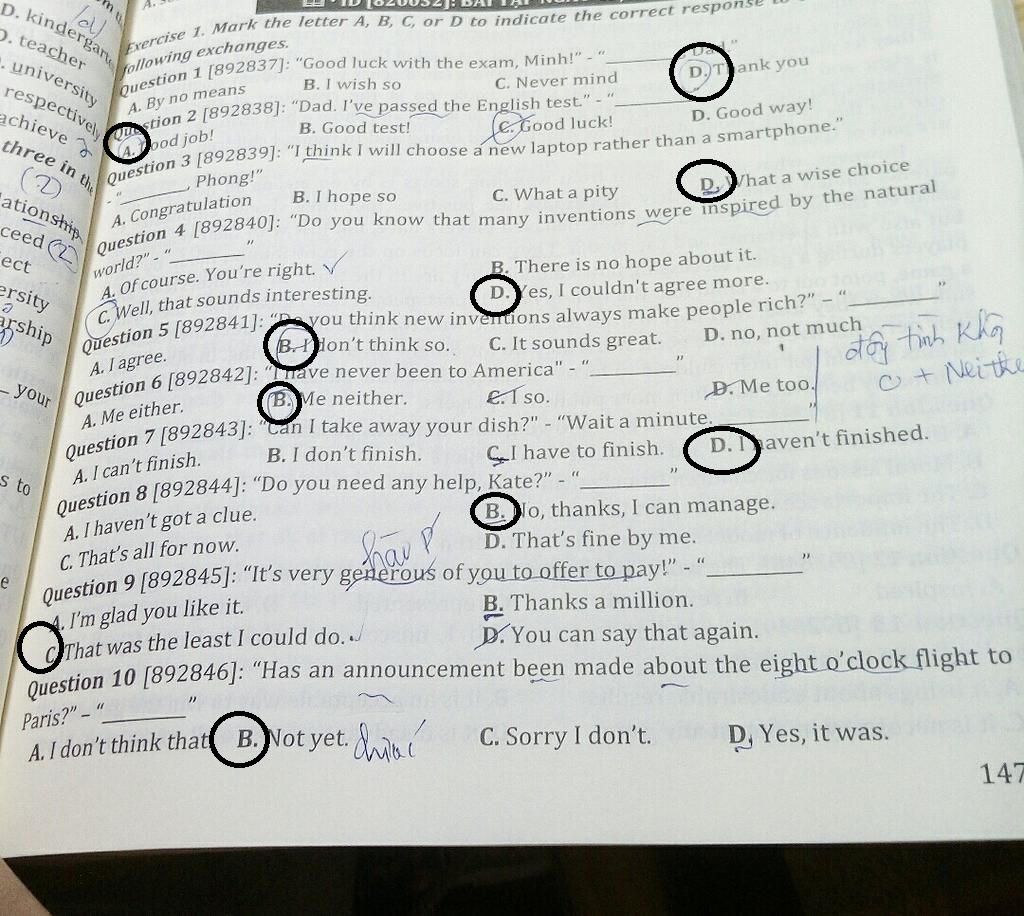 D. kindergarte
D. teacher
. university
respectively
achieve 2
three in th
(2)
lationship
ceed (2)
ject
ersity
arship
your
s to
e
ID [820032]: BÀI TẬP
Exercise 1. Mark the letter A, B, C, or D to indicate the correct response to
following exchanges.
Question 1 [892837]: "Good luck with the exam, Minh!" - "________ Dad."
A. By no means B. I wish so C. Never mind D. Thank you
Question 2 [892838]: "Dad. I've passed the English test." - "________
A. Good job! B. Good test! C. Good luck! D. Good way!
Question 3 [892839]: "I think I will choose a new laptop rather than a smartphone."
- "________, Phong!"
A. Congratulation B. I hope so C. What a pity D. What a wise choice
Question 4 [892840]: "Do you know that many inventions were inspired by the natural
world?" - "________"
A. Of course. You're right. B. There is no hope about it.
C. Well, that sounds interesting. D. Yes, I couldn't agree more.
Question 5 [892841]: "Do you think new inventions always make people rich?" – "________"
A. I agree. B. I don't think so. C. It sounds great. D. no, not much
Question 6 [892842]: "I have never been to America" - "________"
A. Me either. B. Me neither. C. I so. D. Me too.
Question 7 [892843]: "Can I take away your dish?" - "Wait a minute. ________"
A. I can't finish. B. I don't finish. C. I have to finish. D. I haven't finished.
Question 8 [892844]: "Do you need any help, Kate?" - "________"
A. I haven't got a clue. B. No, thanks, I can manage.
C. That's all for now. D. That's fine by me.
hào p
Question 9 [892845]: "It's very generous of you to offer to pay!" - "________"
A. I'm glad you like it. B. Thanks a million.
C. That was the least I could do. D. You can say that again.
Question 10 [892846]: "Has an announcement been made about the eight o'clock flight to
Paris?" – "________"
A. I don't think that B. Not yet. C. Sorry I don't. D. Yes, it was.
147